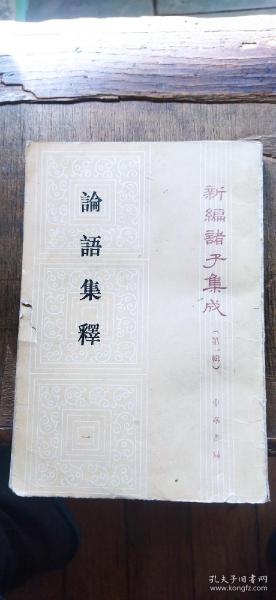 新編諸子集成
(第一輯)
中華書局
論語集釋
一
孔夫子旧书网